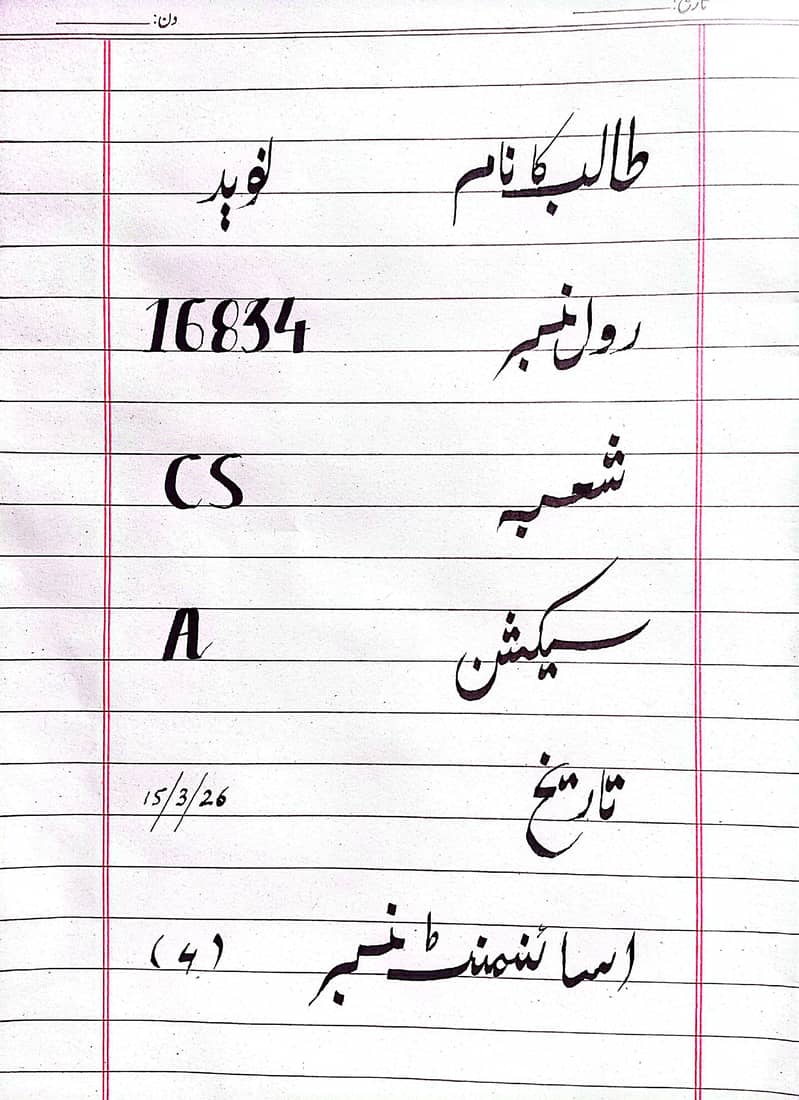 تاریخ: دن:
طالب کا نام نوید
رول نمبر 16834
شعبہ CS
سیکشن A
تاریخ 15/3/26
اسائنمنٹ نمبر (4)